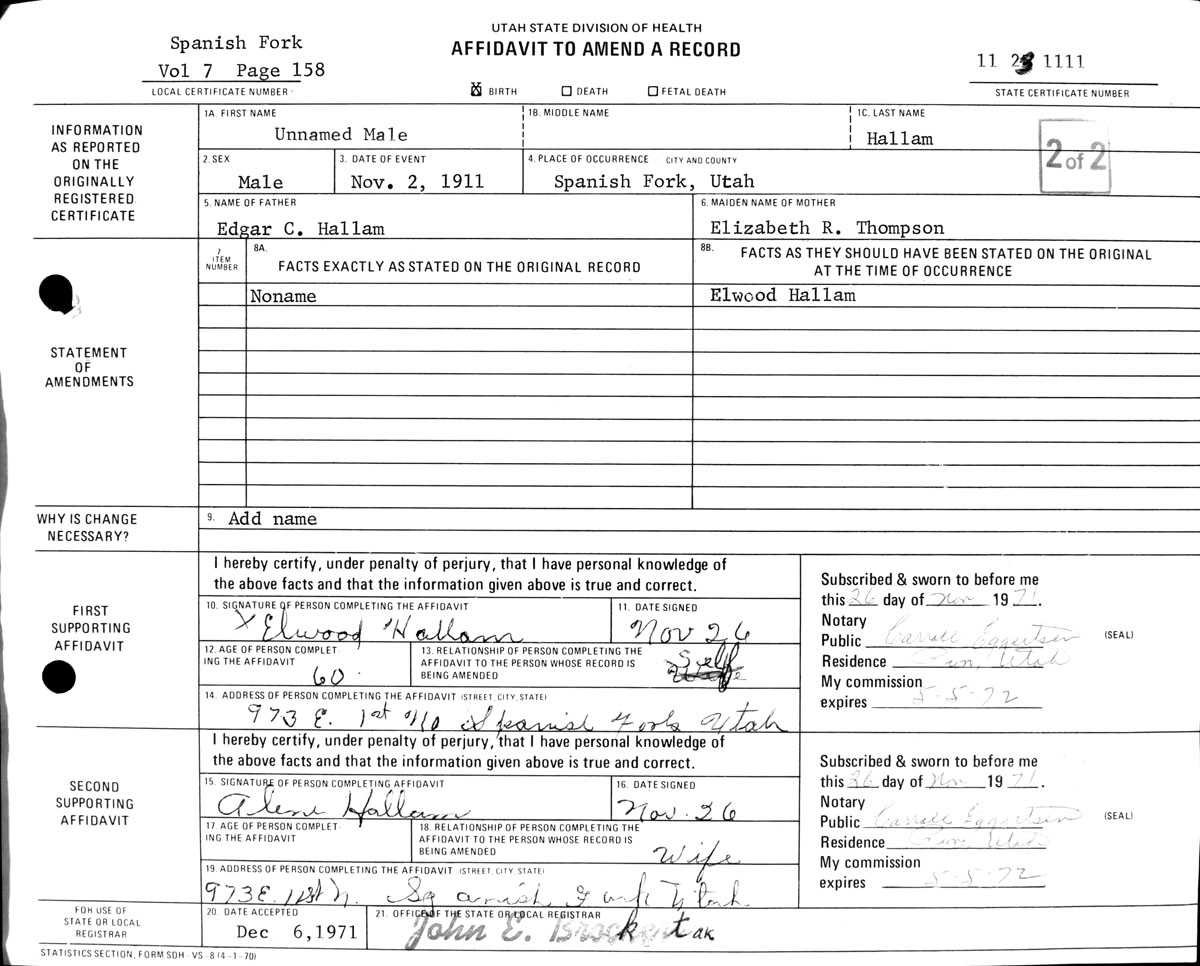 UTAH STATE DIVISION OF HEALTH
AFFIDAVIT TO AMEND A RECORD
Spanish Fork
Vol 7 Page 158
LOCAL CERTIFICATE NUMBER
☒ BIRTH ☐ DEATH ☐ FETAL DEATH
11 23 1111
STATE CERTIFICATE NUMBER
INFORMATION AS REPORTED ON THE ORIGINALLY REGISTERED CERTIFICATE
1A. FIRST NAME 1B. MIDDLE NAME 1C. LAST NAME
Unnamed Male Hallam
2 of 2
2. SEX 3. DATE OF EVENT 4. PLACE OF OCCURRENCE CITY AND COUNTY
Male Nov. 2, 1911 Spanish Fork, Utah
5. NAME OF FATHER 6. MAIDEN NAME OF MOTHER
Edgar C. Hallam Elizabeth R. Thompson
STATEMENT OF AMENDMENTS
7 ITEM NUMBER
8A. FACTS EXACTLY AS STATED ON THE ORIGINAL RECORD
8B. FACTS AS THEY SHOULD HAVE BEEN STATED ON THE ORIGINAL
AT THE TIME OF OCCURRENCE
Noname Elwood Hallam
WHY IS CHANGE NECESSARY?
9. Add name
FIRST SUPPORTING AFFIDAVIT
I hereby certify, under penalty of perjury, that I have personal knowledge of
the above facts and that the information given above is true and correct.
10. SIGNATURE OF PERSON COMPLETING THE AFFIDAVIT 11. DATE SIGNED
X Elwood Hallam Nov 26
12. AGE OF PERSON COMPLETING THE AFFIDAVIT
60
13. RELATIONSHIP OF PERSON COMPLETING THE
AFFIDAVIT TO THE PERSON WHOSE RECORD IS
BEING AMENDED
Self
14. ADDRESS OF PERSON COMPLETING THE AFFIDAVIT (STREET, CITY, STATE)
973 E. 1st No Spanish Fork Utah
Subscribed & sworn to before me
this 26 day of Nov 1971.
Notary
Public Carrall Eggertsen (SEAL)
Residence Utah
My commission
expires 5-5-72
SECOND SUPPORTING AFFIDAVIT
I hereby certify, under penalty of perjury, that I have personal knowledge of
the above facts and that the information given above is true and correct.
15. SIGNATURE OF PERSON COMPLETING AFFIDAVIT 16. DATE SIGNED
Alene Hallam Nov. 26
17. AGE OF PERSON COMPLETING THE AFFIDAVIT
18. RELATIONSHIP OF PERSON COMPLETING THE
AFFIDAVIT TO THE PERSON WHOSE RECORD IS
BEING AMENDED
Wife
19. ADDRESS OF PERSON COMPLETING THE AFFIDAVIT (STREET, CITY, STATE)
973 E. 1st N. Spanish Fork Utah
Subscribed & sworn to before me
this 26 day of Nov 1971.
Notary
Public Carrall Eggertsen (SEAL)
Residence Utah
My commission
expires 5-5-72
FOR USE OF STATE OR LOCAL REGISTRAR
20. DATE ACCEPTED 21. OFFICE OF THE STATE OR LOCAL REGISTRAR
Dec 6,1971 John E. Brockert ak
STATISTICS SECTION, FORM SDH - VS -8 (4-1-70)